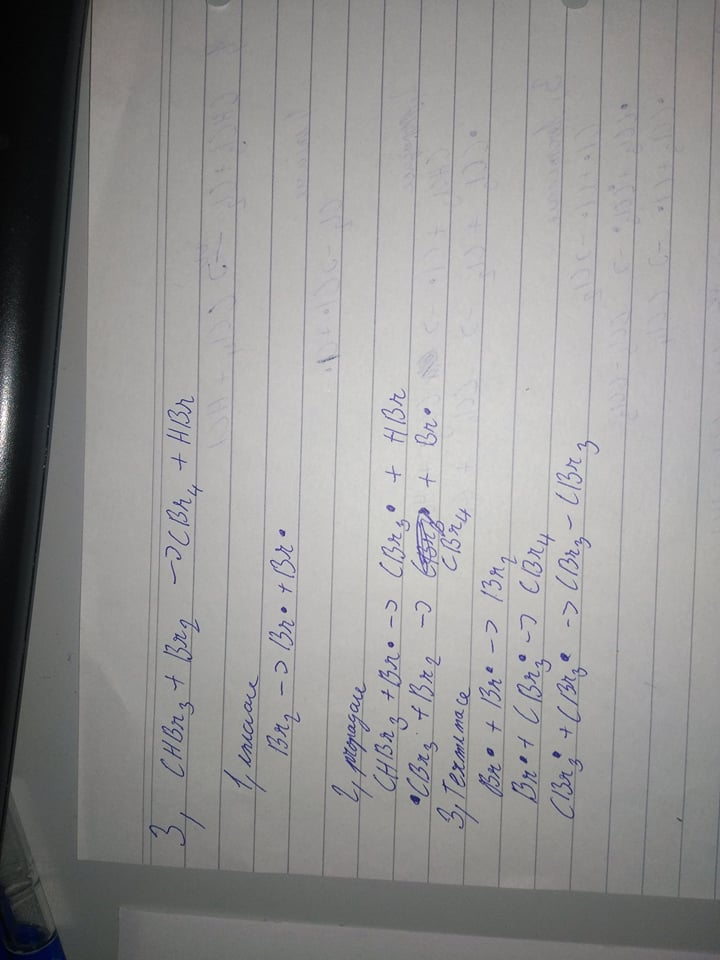 3, CHBr₃ + Br₂ → CBr₄ + HBr
1, iniciace
Br₂ → Br• + Br•
2, propagace
CHBr₃ + Br• → CBr₃• + HBr
•CBr₃ + Br₂ → CBr₄ + Br•
3, Terminace
Br• + Br• → Br₂
Br• + CBr₃• → CBr₄
CBr₃• + CBr₃• → CBr₃ - CBr₃